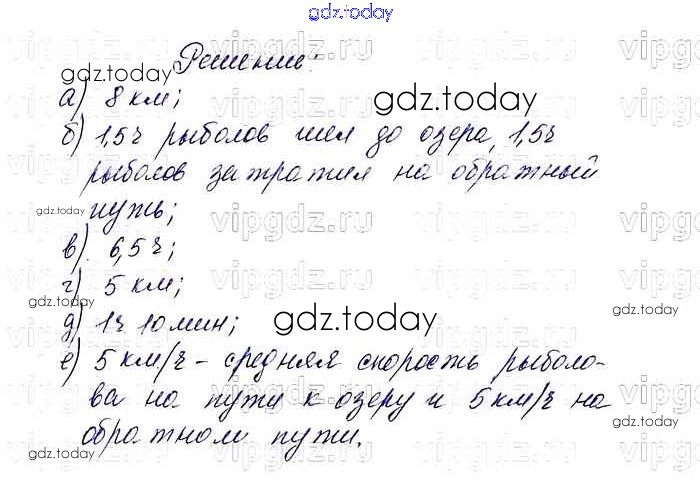 gdz.today
Решение:
а) 8 км;
б) 1,5ч рыболов шел до озера, 1,5ч
рыболов затратил на обратный
путь;
в) 6,5ч;
г) 5 км;
д) 1ч 10 мин;
е) 5 км/ч - средняя скорость рыболо-
ва на пути к озеру и 5 км/ч на
обратном пути.
gdz.today
gdz.today
gdz.today
gdz.today
gdz.today
gdz.today
gdz.today
gdz.today
vipgdz.ru
vipgdz.ru
vipgdz.ru
vipgdz.ru